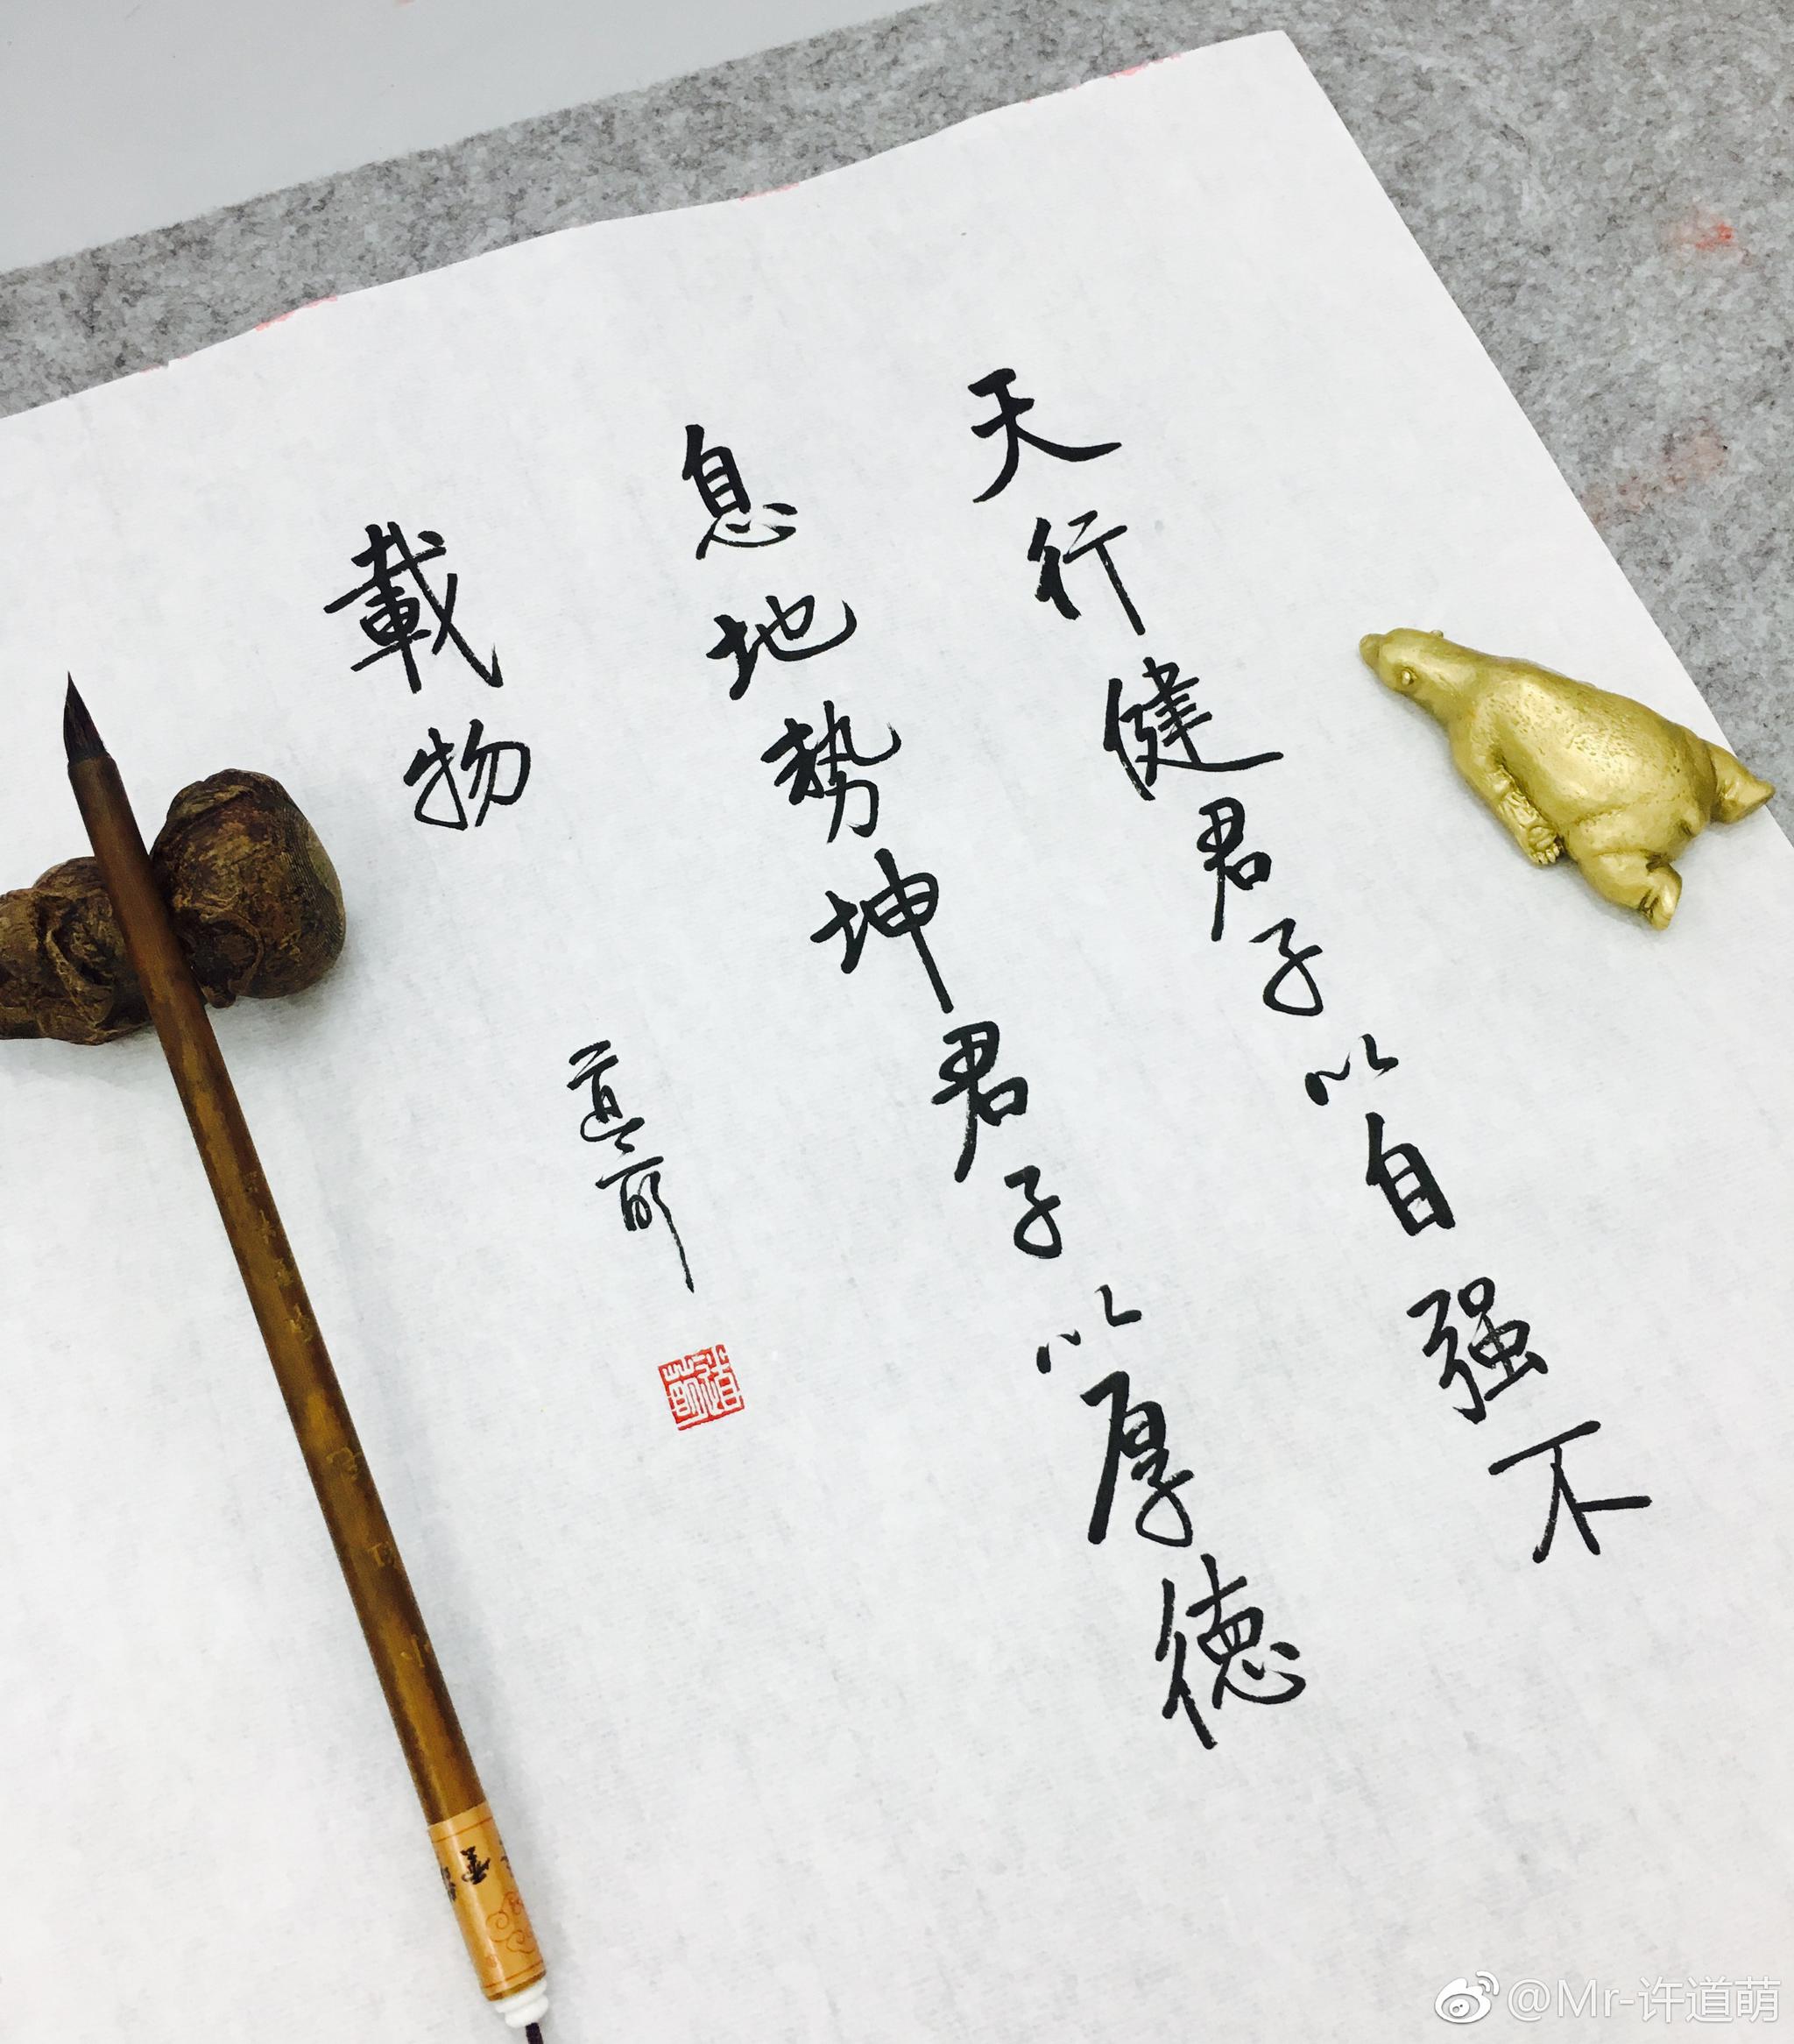 天行健君子以自强不
息地势坤君子以厚德
載物
道萌
道萌
@Mr-许道萌